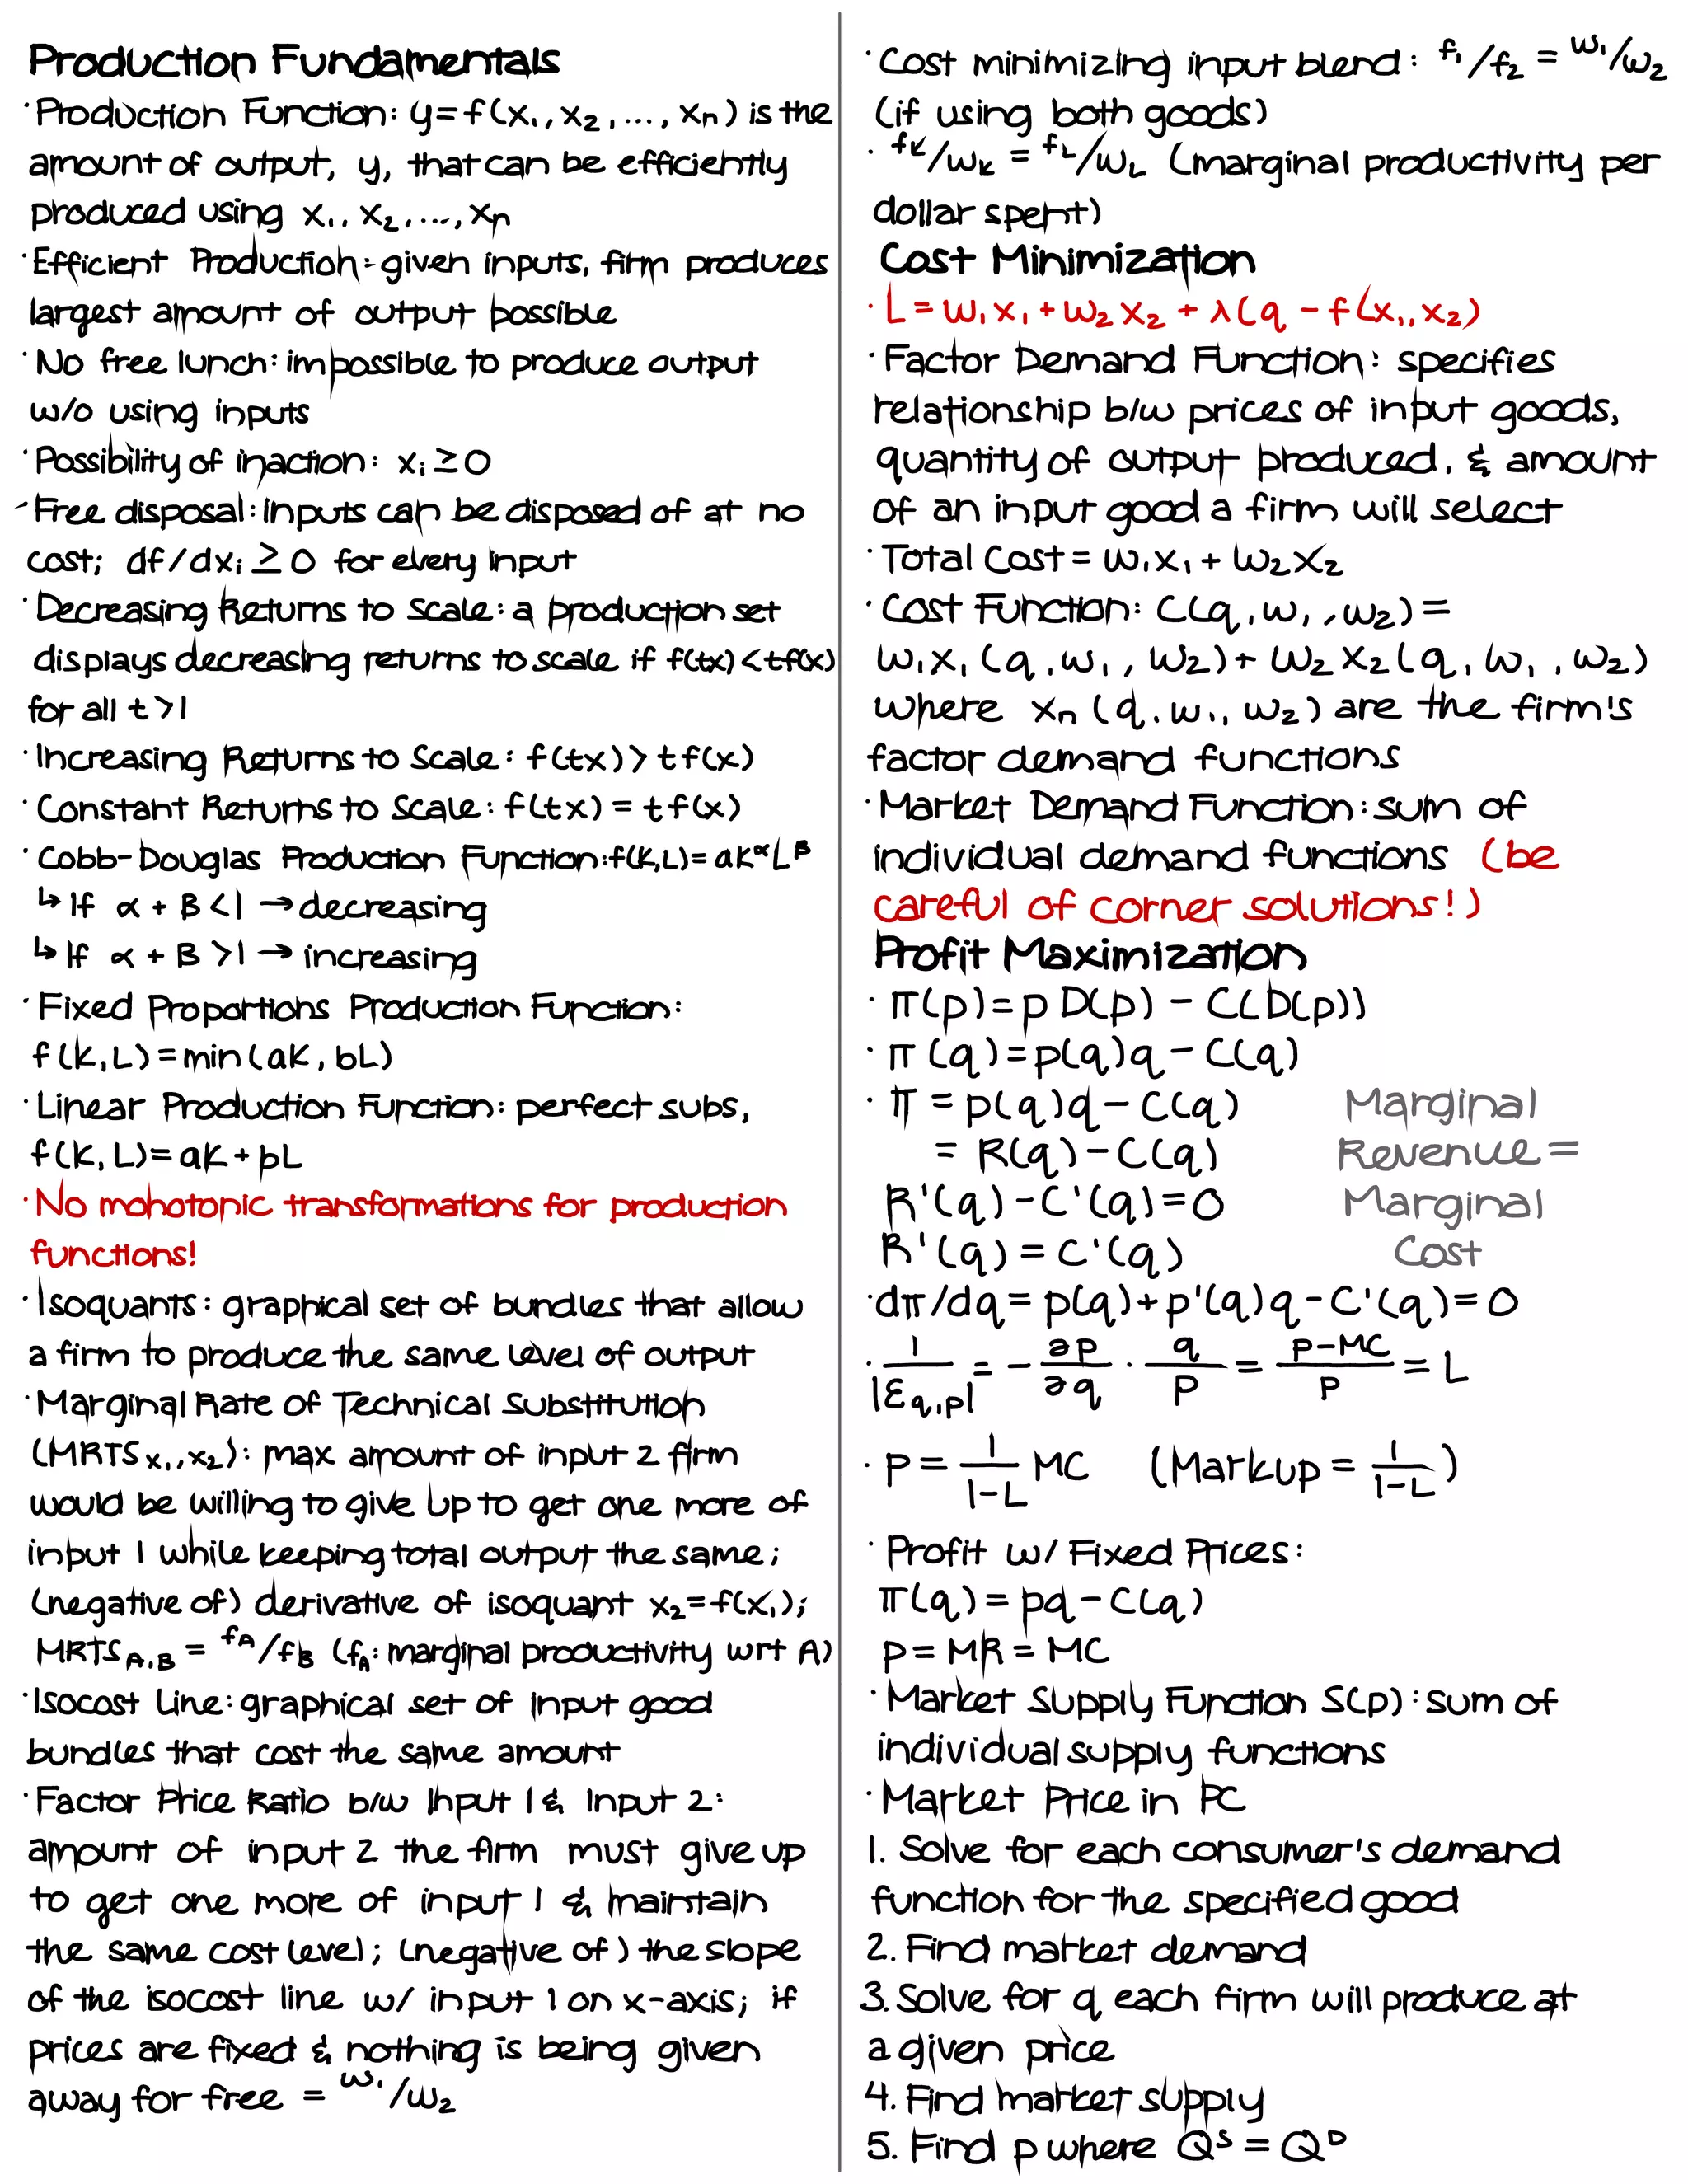 Production Fundamentals
·Production Function: y=f(x₁,x₂,...,xₙ) is the
amount of output, y, that can be efficiently
produced using x₁,x₂,...,xₙ
·Efficient Production: given inputs, firm produces
largest amount of output possible
·No free lunch: impossible to produce output
w/o using inputs
·Possibility of inaction: xᵢ≥0
-Free disposal: inputs can be disposed of at no
cost; df/dxᵢ≥0 for every input
·Decreasing Returns to Scale: a production set
displays decreasing returns to scale if f(tx)<tf(x)
for all t>1
·Increasing Returns to Scale: f(tx)>tf(x)
·Constant Returns to Scale: f(tx)=tf(x)
·Cobb-Douglas Production Function: f(K,L)=aK^αL^β
↳If α+β<1→decreasing
↳If α+β>1→increasing
·Fixed Proportions Production Function:
f(K,L)=min(aK,bL)
·Linear Production Function: perfect subs,
f(K,L)=aK+bL
·No monotonic transformations for production
functions!
·Isoquants: graphical set of bundles that allow
a firm to produce the same level of output
·Marginal Rate of Technical Substitution
(MRTS x₁,x₂): max amount of input 2 firm
would be willing to give up to get one more of
input 1 while keeping total output the same;
(negative of) derivative of isoquant x₂=f(x₁);
MRTS A,B = fA/fB (fA: marginal productivity wrt A)
·Isocost Line: graphical set of input good
bundles that cost the same amount
·Factor Price Ratio b/w Input 1 & Input 2:
amount of input 2 the firm must give up
to get one more of input 1 & maintain
the same cost level; (negative of) the slope
of the isocost line w/ input 1 on x-axis; if
prices are fixed & nothing is being given
away for free = w₁/w₂
·Cost minimizing input blend: f₁/f₂ = w₁/w₂
(if using both goods)
·fK/wK = fL/wL (marginal productivity per
dollar spent)
Cost Minimization
·L=w₁x₁+w₂x₂+λ(q-f(x₁,x₂)
·Factor Demand Function: specifies
relationship b/w prices of input goods,
quantity of output produced, & amount
of an input good a firm will select
·Total Cost=w₁x₁+w₂x₂
·Cost Function: C(q,w₁,w₂)=
w₁x₁(q,w₁,w₂)+w₂x₂(q,w₁,w₂)
where xₙ(q,w₁,w₂) are the firm's
factor demand functions
·Market Demand Function: sum of
individual demand functions (be
careful of corner solutions!)
Profit Maximization
·π(p)=p D(p) - C(D(p))
·π(q)=p(q)q-C(q)
·π=p(q)q-C(q) Marginal
=R(q)-C(q) Revenue=
R'(q)-C'(q)=0 Marginal
R'(q)=C'(q) Cost
·dπ/dq=p(q)+p'(q)q-C'(q)=0
·1/|εq,p| = -∂p/∂q · q/p = p-MC/p = L
·p = 1/1-L MC (Markup = 1/1-L)
·Profit w/ Fixed Prices:
π(q)=pq-C(q)
p=MR=MC
·Market Supply Function S(p): sum of
individual supply functions
·Market Price in PC
1. Solve for each consumer's demand
function for the specified good
2. Find market demand
3. Solve for q each firm will produce at
a given price
4. Find market supply
5. Find p where Qˢ=Qᴰ